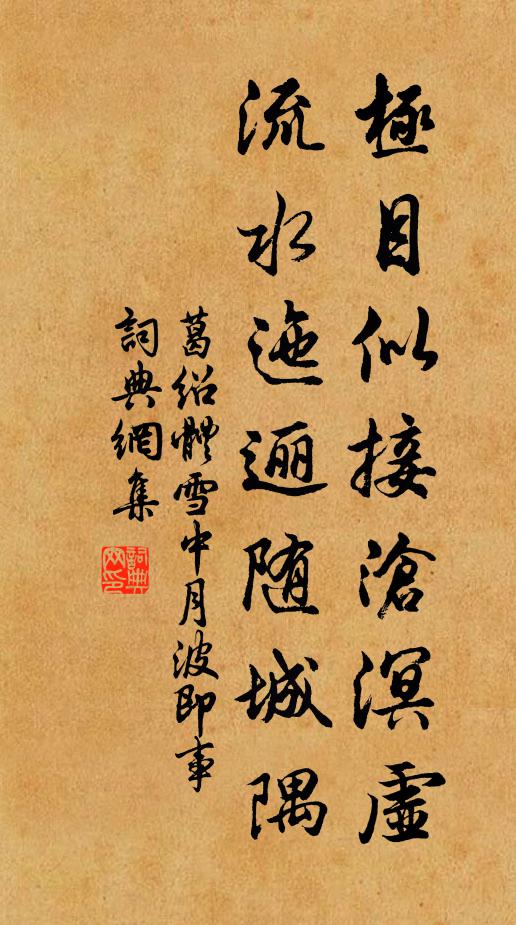 極目似接滄溟虛
流水迤逦随城隅
葛绍體雪中月波即事
詞典網集
詞典網印